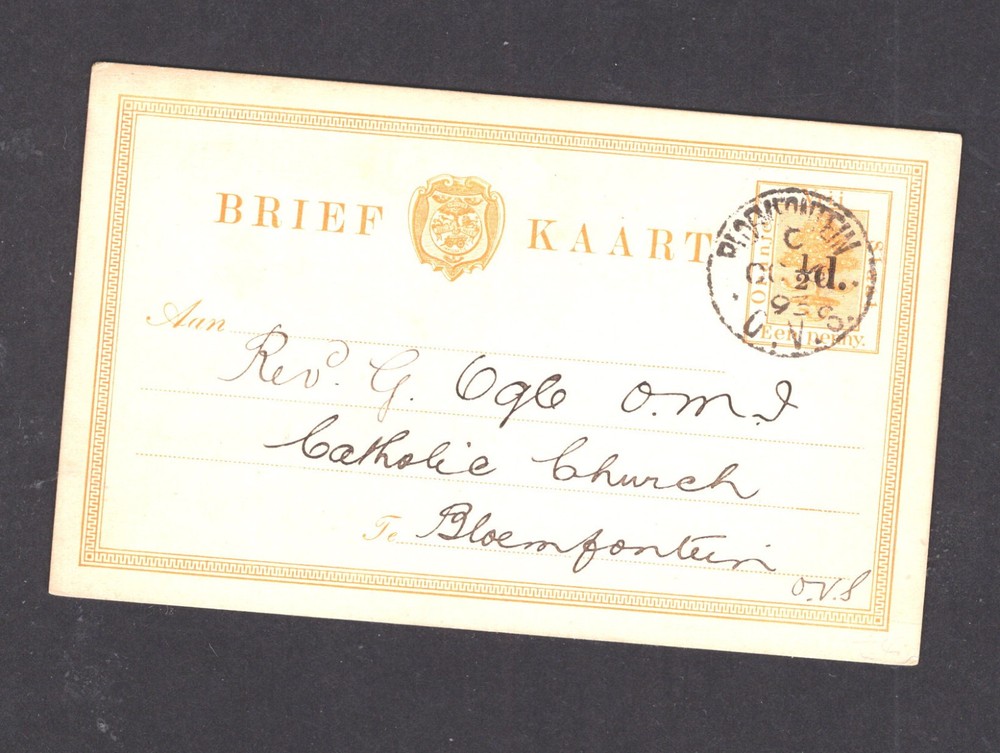 BRIEF KAART
BLOEMFONTEIN
C
½d.
93
Een Penny.
Aan
Rev. G. Ogle O.M.I
Catholic Church
Te Bloemfontein
O.V.S